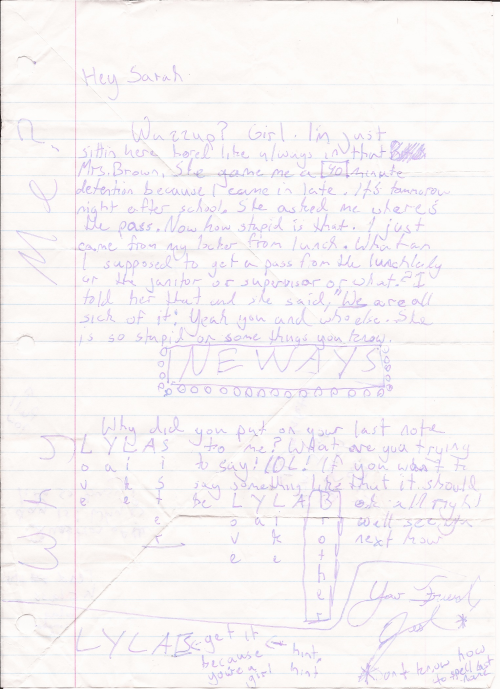 Hey Sarah
Wuzzup? Girl. I'm just
sittin here bored like always in that
Mrs. Brown. She game me a 40 minute
detention because I came in late. It's tomorrow
night after school. She asked me where's
the pass. Now how stupid is that. I just
came from my locker from lunch. What am
I supposed to get a pass from the lunchlady
or the janitor or supervisor or what? I
told her that and she said, "We are all
sick of it." Yeah you and who else. She
is so stupid or some things you know.
NEWAYS
Why did you put on your last note
LYLAS to me? What are you trying
o a i i to say! LOL! If you want to
v k s say something like that it should
e e t be LYLAB ok all right
e o a i r well see ya
r v k o next hour
e e t
h
e
r
Your Friend,
LYLAB get it
because hint,
you're a girl hint
* ont know how
to spell last
name
Why Me?